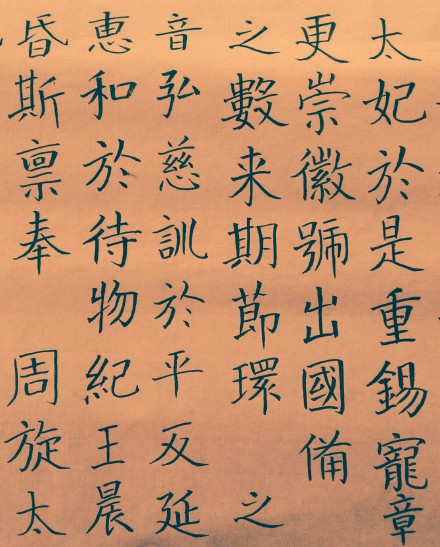 太妃於是重錫寵章
更崇徽號出國備
之數来期節環之
音弘慈訓於平反延
惠和於待物紀王晨
昏斯禀奉周旋太